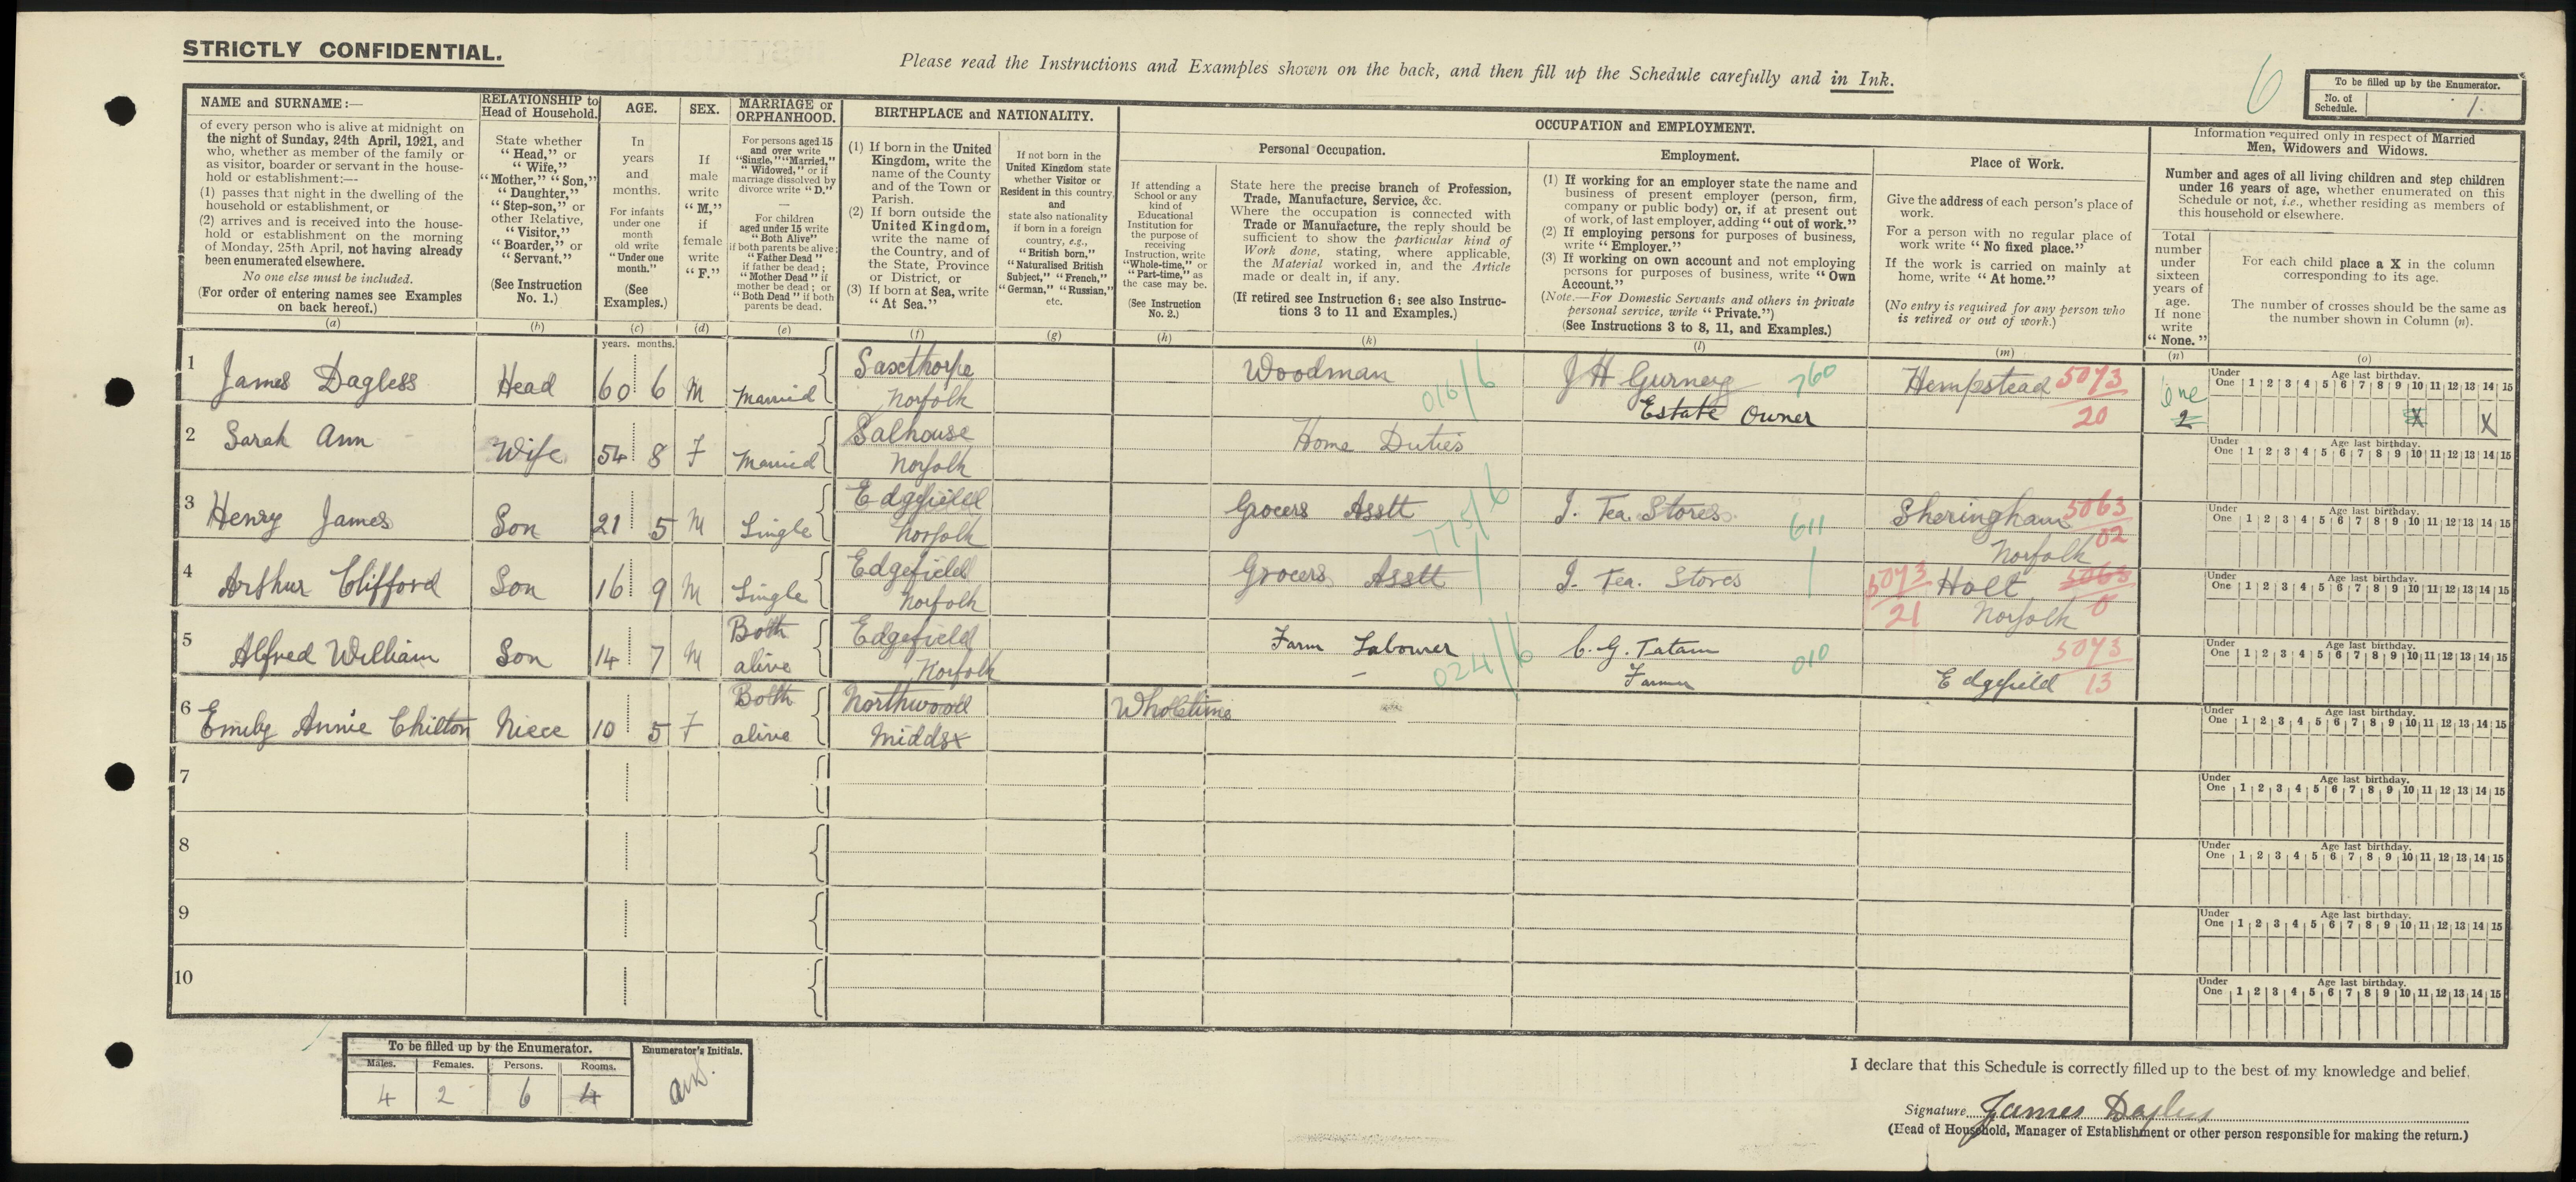 STRICTLY CONFIDENTIAL.
Please read the Instructions and Examples shown on the back, and then fill up the Schedule carefully and in Ink.
6
To be filled up by the Enumerator.
No. of Schedule. 1.
NAME and SURNAME:—
of every person who is alive at midnight on
the night of Sunday, 24th April, 1921, and
who, whether as member of the family or
as visitor, boarder or servant in the house-
hold or establishment:—
(1) passes that night in the dwelling of the
household or establishment, or
(2) arrives and is received into the house-
hold or establishment on the morning
of Monday, 25th April, not having already
been enumerated elsewhere.
No one else must be included.
(For order of entering names see Examples
on back hereof.)
(a)
RELATIONSHIP to
Head of Household.
State whether
"Head," or
"Wife,"
"Mother," "Son,"
"Daughter,"
"Step-son," or
other Relative,
"Visitor,"
"Boarder," or
"Servant."
(See Instruction
No. 1.)
(b)
AGE.
In
years
and
months.
For infants
under one
month
old write
"Under one
month."
(See
Examples.)
(c)
years. months.
SEX.
If
male
write
"M,"
if
female
write
"F."
(d)
MARRIAGE or
ORPHANHOOD.
For persons aged 15
and over write
"Single," "Married,"
"Widowed," or if
marriage dissolved by
divorce write "D."
—
For children
aged under 15 write
"Both Alive"
if both parents be alive;
"Father Dead"
if father be dead;
"Mother Dead" if
mother be dead; or
"Both Dead" if both
parents be dead.
(e)
BIRTHPLACE and NATIONALITY.
(1) If born in the United
Kingdom, write the
name of the County
and of the Town or
Parish.
(2) If born outside the
United Kingdom,
write the name of
the Country, and of
the State, Province
or District, or
(3) If born at Sea, write
"At Sea."
(f)
If not born in the
United Kingdom state
whether Visitor or
Resident in this country,
and
state also nationality
if born in a foreign
country, e.g.,
"British born,"
"Naturalised British
Subject," "French,"
"German," "Russian,"
etc.
(g)
OCCUPATION and EMPLOYMENT.
Personal Occupation.
If attending a
School or any
kind of
Educational
Institution for
the purpose of
receiving
Instruction, write
"Whole-time," or
"Part-time," as
the case may be.
(See Instruction
No. 2.)
(h)
State here the precise branch of Profession,
Trade, Manufacture, Service, &c.
Where the occupation is connected with
Trade or Manufacture, the reply should be
sufficient to show the particular kind of
Work done, stating, where applicable,
the Material worked in, and the Article
made or dealt in, if any.
(If retired see Instruction 6; see also Instruc-
tions 3 to 11 and Examples.)
(k)
Employment.
(1) If working for an employer state the name and
business of present employer (person, firm,
company or public body) or, if at present out
of work, of last employer, adding "out of work."
(2) If employing persons for purposes of business,
write "Employer."
(3) If working on own account and not employing
persons for purposes of business, write "Own
Account."
(Note.—For Domestic Servants and others in private
personal service, write "Private.")
(See Instructions 3 to 8, 11, and Examples.)
(l)
Place of Work.
Give the address of each person's place of
work.
For a person with no regular place of
work write "No fixed place."
If the work is carried on mainly at
home, write "At home."
(No entry is required for any person who
is retired or out of work.)
(m)
Information required only in respect of Married
Men, Widowers and Widows.
Number and ages of all living children and step children
under 16 years of age, whether enumerated on this
Schedule or not, i.e., whether residing as members of
this household or elsewhere.
Total
number
under
sixteen
years of
age.
If none
write
"None."
(n)
For each child place a X in the column
corresponding to its age.
The number of crosses should be the same as
the number shown in Column (n).
(o)
1 James Dagless Head 60 6 M Married Saxthorpe Norfolk Woodman 016/6 J H Gurney Estate Owner 760 Hempstead 5073/20 one 2 X X
Under One Age last birthday. 1 2 3 4 5 6 7 8 9 10 11 12 13 14 15
2 Sarah Ann Wife 54 8 F Married Salhouse Norfolk Home Duties
Under One Age last birthday. 1 2 3 4 5 6 7 8 9 10 11 12 13 14 15
3 Henry James Son 21 5 M Single Edgefield Norfolk Grocers Asstt 775/6 I. Tea. Stores 611 Sheringham Norfolk 5063/02
Under One Age last birthday. 1 2 3 4 5 6 7 8 9 10 11 12 13 14 15
4 Arthur Clifford Son 16 9 M Single Edgefield Norfolk Grocers Asstt I. Tea. Stores 5073/21 Holt Norfolk 5063/0
Under One Age last birthday. 1 2 3 4 5 6 7 8 9 10 11 12 13 14 15
5 Alfred William Son 14 7 M Both alive Edgefield Norfolk Farm Labourer 024/6 C. G. Tatam Farmer 010 Edgefield 5073/13
Under One Age last birthday. 1 2 3 4 5 6 7 8 9 10 11 12 13 14 15
6 Emily Annie Chilton Niece 10 5 F Both alive Northwood Middsx Wholetime
Under One Age last birthday. 1 2 3 4 5 6 7 8 9 10 11 12 13 14 15
7
Under One Age last birthday. 1 2 3 4 5 6 7 8 9 10 11 12 13 14 15
8
Under One Age last birthday. 1 2 3 4 5 6 7 8 9 10 11 12 13 14 15
9
Under One Age last birthday. 1 2 3 4 5 6 7 8 9 10 11 12 13 14 15
10
Under One Age last birthday. 1 2 3 4 5 6 7 8 9 10 11 12 13 14 15
To be filled up by the Enumerator. Enumerator's Initials.
Males. Females. Persons. Rooms.
4 2 6 4
I declare that this Schedule is correctly filled up to the best of my knowledge and belief.
Signature James Dagless
(Head of Household, Manager of Establishment or other person responsible for making the return.)